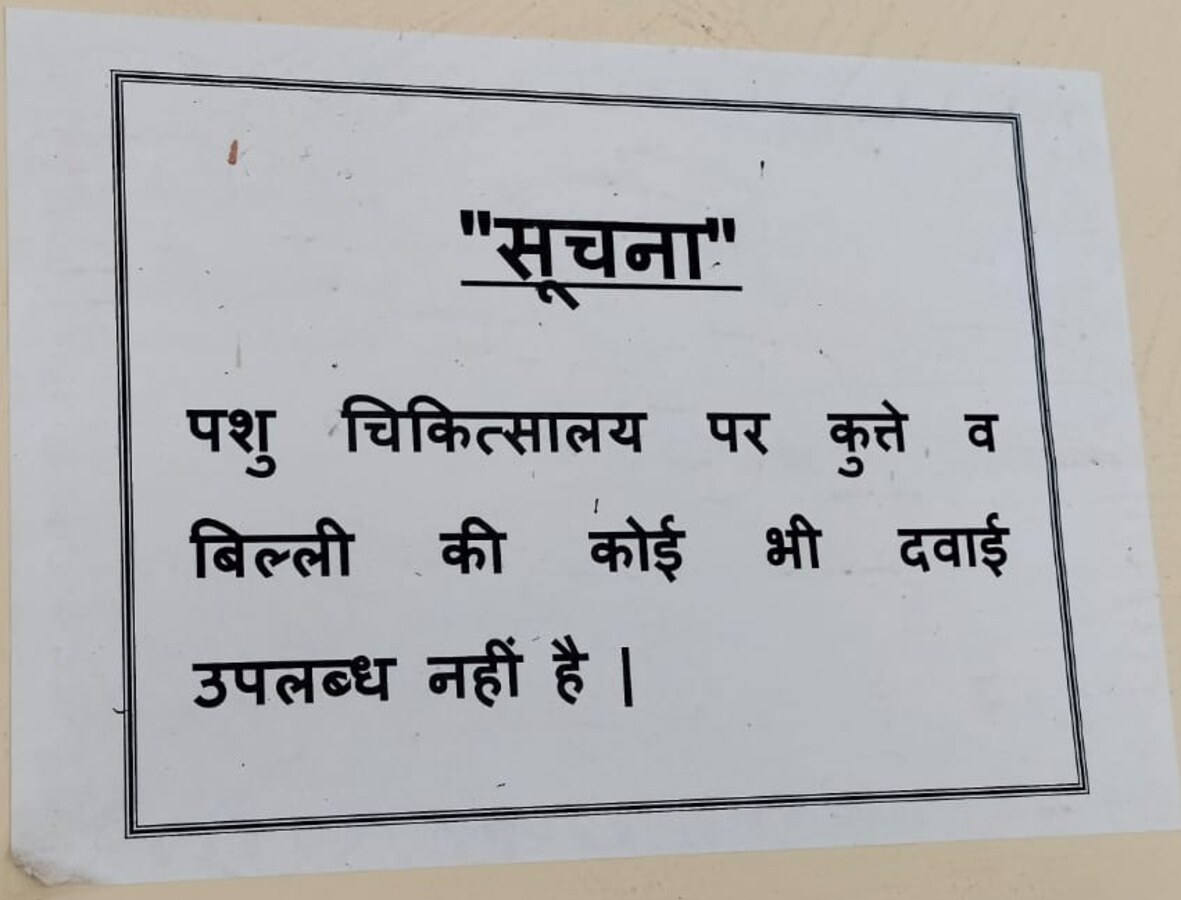 "सूचना"
पशु चिकित्सालय पर कुत्ते व
बिल्ली की कोई भी दवाई
उपलब्ध नहीं है |